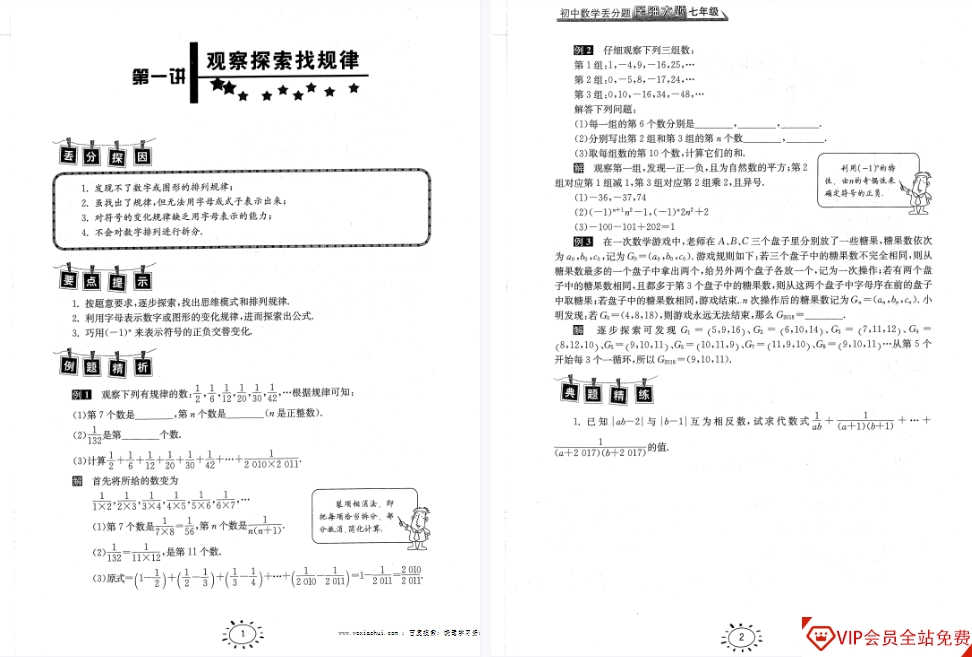 第一讲
观察探索找规律
丢分探因
1. 发现不了数字或图形的排列规律;
2. 虽找出了规律,但无法用字母或式子表示出来;
3. 对符号的变化规律缺乏用字母表示的能力;
4. 不会对数字排列进行拆分.
要点提示
1. 按题意要求,逐步探索,找出思维模式和排列规律.
2. 利用字母表示数字或图形的变化规律,进而探索出公式.
3. 巧用(-1)ⁿ 来表示符号的正负交替变化.
例题精析
例1 观察下列有规律的数:1/2,1/6,1/12,1/20,1/30,1/42,…根据规律可知:
(1)第 7 个数是________,第 n 个数是________(n 是正整数).
(2)1/132是第________个数.
(3)计算1/2+1/6+1/12+1/20+1/30+1/42+…+1/(2 010×2 011).
解 首先将所给的数变为
1/(1×2),1/(2×3),1/(3×4),1/(4×5),1/(5×6),1/(6×7),…
(1)第 7 个数是1/(7×8)=1/56,第 n 个数是1/(n(n+1)).
(2)1/132=1/(11×12),是第 11 个数.
(3)原式=(1-1/2)+(1/2-1/3)+(1/3-1/4)+…+(1/2 010-1/2 011)=1-1/2 011=2 010/2 011.
裂项相消法,即
把每项恰当拆分,部
分抵消,简化计算.
1
初中数学丢分题 七年级
例2 仔细观察下列三组数:
第 1 组:1,-4,9,-16,25,…
第 2 组:0,-5,8,-17,24,…
第 3 组:0,10,-16,34,-48,…
解答下列问题:
(1)每一组的第 6 个数分别是________,________,________.
(2)分别写出第 2 组和第 3 组的第 n 个数________,________.
(3)取每组数的第 10 个数,计算它们的和.
解 观察第一组,发现一正一负,且为自然数的平方;第 2
组对应第 1 组减 1,第 3 组对应第 2 组乘 2,且异号.
(1)-36,-37,74
(2)(-1)ⁿ⁺¹n²-1,(-1)ⁿ2n²+2
(3)-100-101+202=1
利用(-1)ⁿ的特
性,由n的奇偶性来
确定符号的正负.
例3 在一次数学游戏中,老师在 A、B、C 三个盘子里分别放了一些糖果,糖果数依次
为 a₀,b₀,c₀,记为 G₀=(a₀,b₀,c₀). 游戏规则如下:若三个盘子中的糖果数不完全相同,则从
糖果数最多的一个盘子中拿出两个,给另外两个盘子各放一个,记为一次操作;若有两个盘
子中的糖果数相同,且都多于第 3 个盘子中的糖果数,则从这两个盘子中字母序在前的盘子
中取糖果;若盘子中的糖果数相同,游戏结束. n 次操作后的糖果数记为 Gₙ=(aₙ,bₙ,cₙ). 小
明发现:若 G₀=(4,8,18),则游戏永远无法结束,那么 G₂₀₁₈=________.
解 逐步探索可发现 G₁=(5,9,16)、G₂=(6,10,14)、G₃=(7,11,12)、G₄=
(8,12,10)、G₅=(9,10,11)、G₆=(10,11,9)、G₇=(11,9,10)、G₈=(9,10,11)…从第 5 个
开始每 3 个一循环,所以 G₂₀₁₈=(9,10,11).
典题精练
1. 已知|ab-2|与|b-1|互为相反数,试求代数式1/(ab)+1/((a+1)(b+1))+…+
1/((a+2 017)(b+2 017))的值.
2
VIP会员全站免费